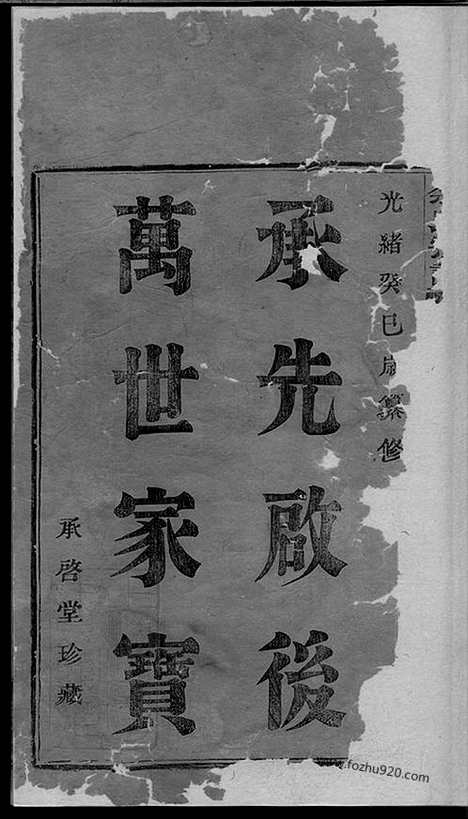 光緒癸巳歲纂修
承先啟後
萬世家寶
承啓堂珍藏
www.fozhu920.com